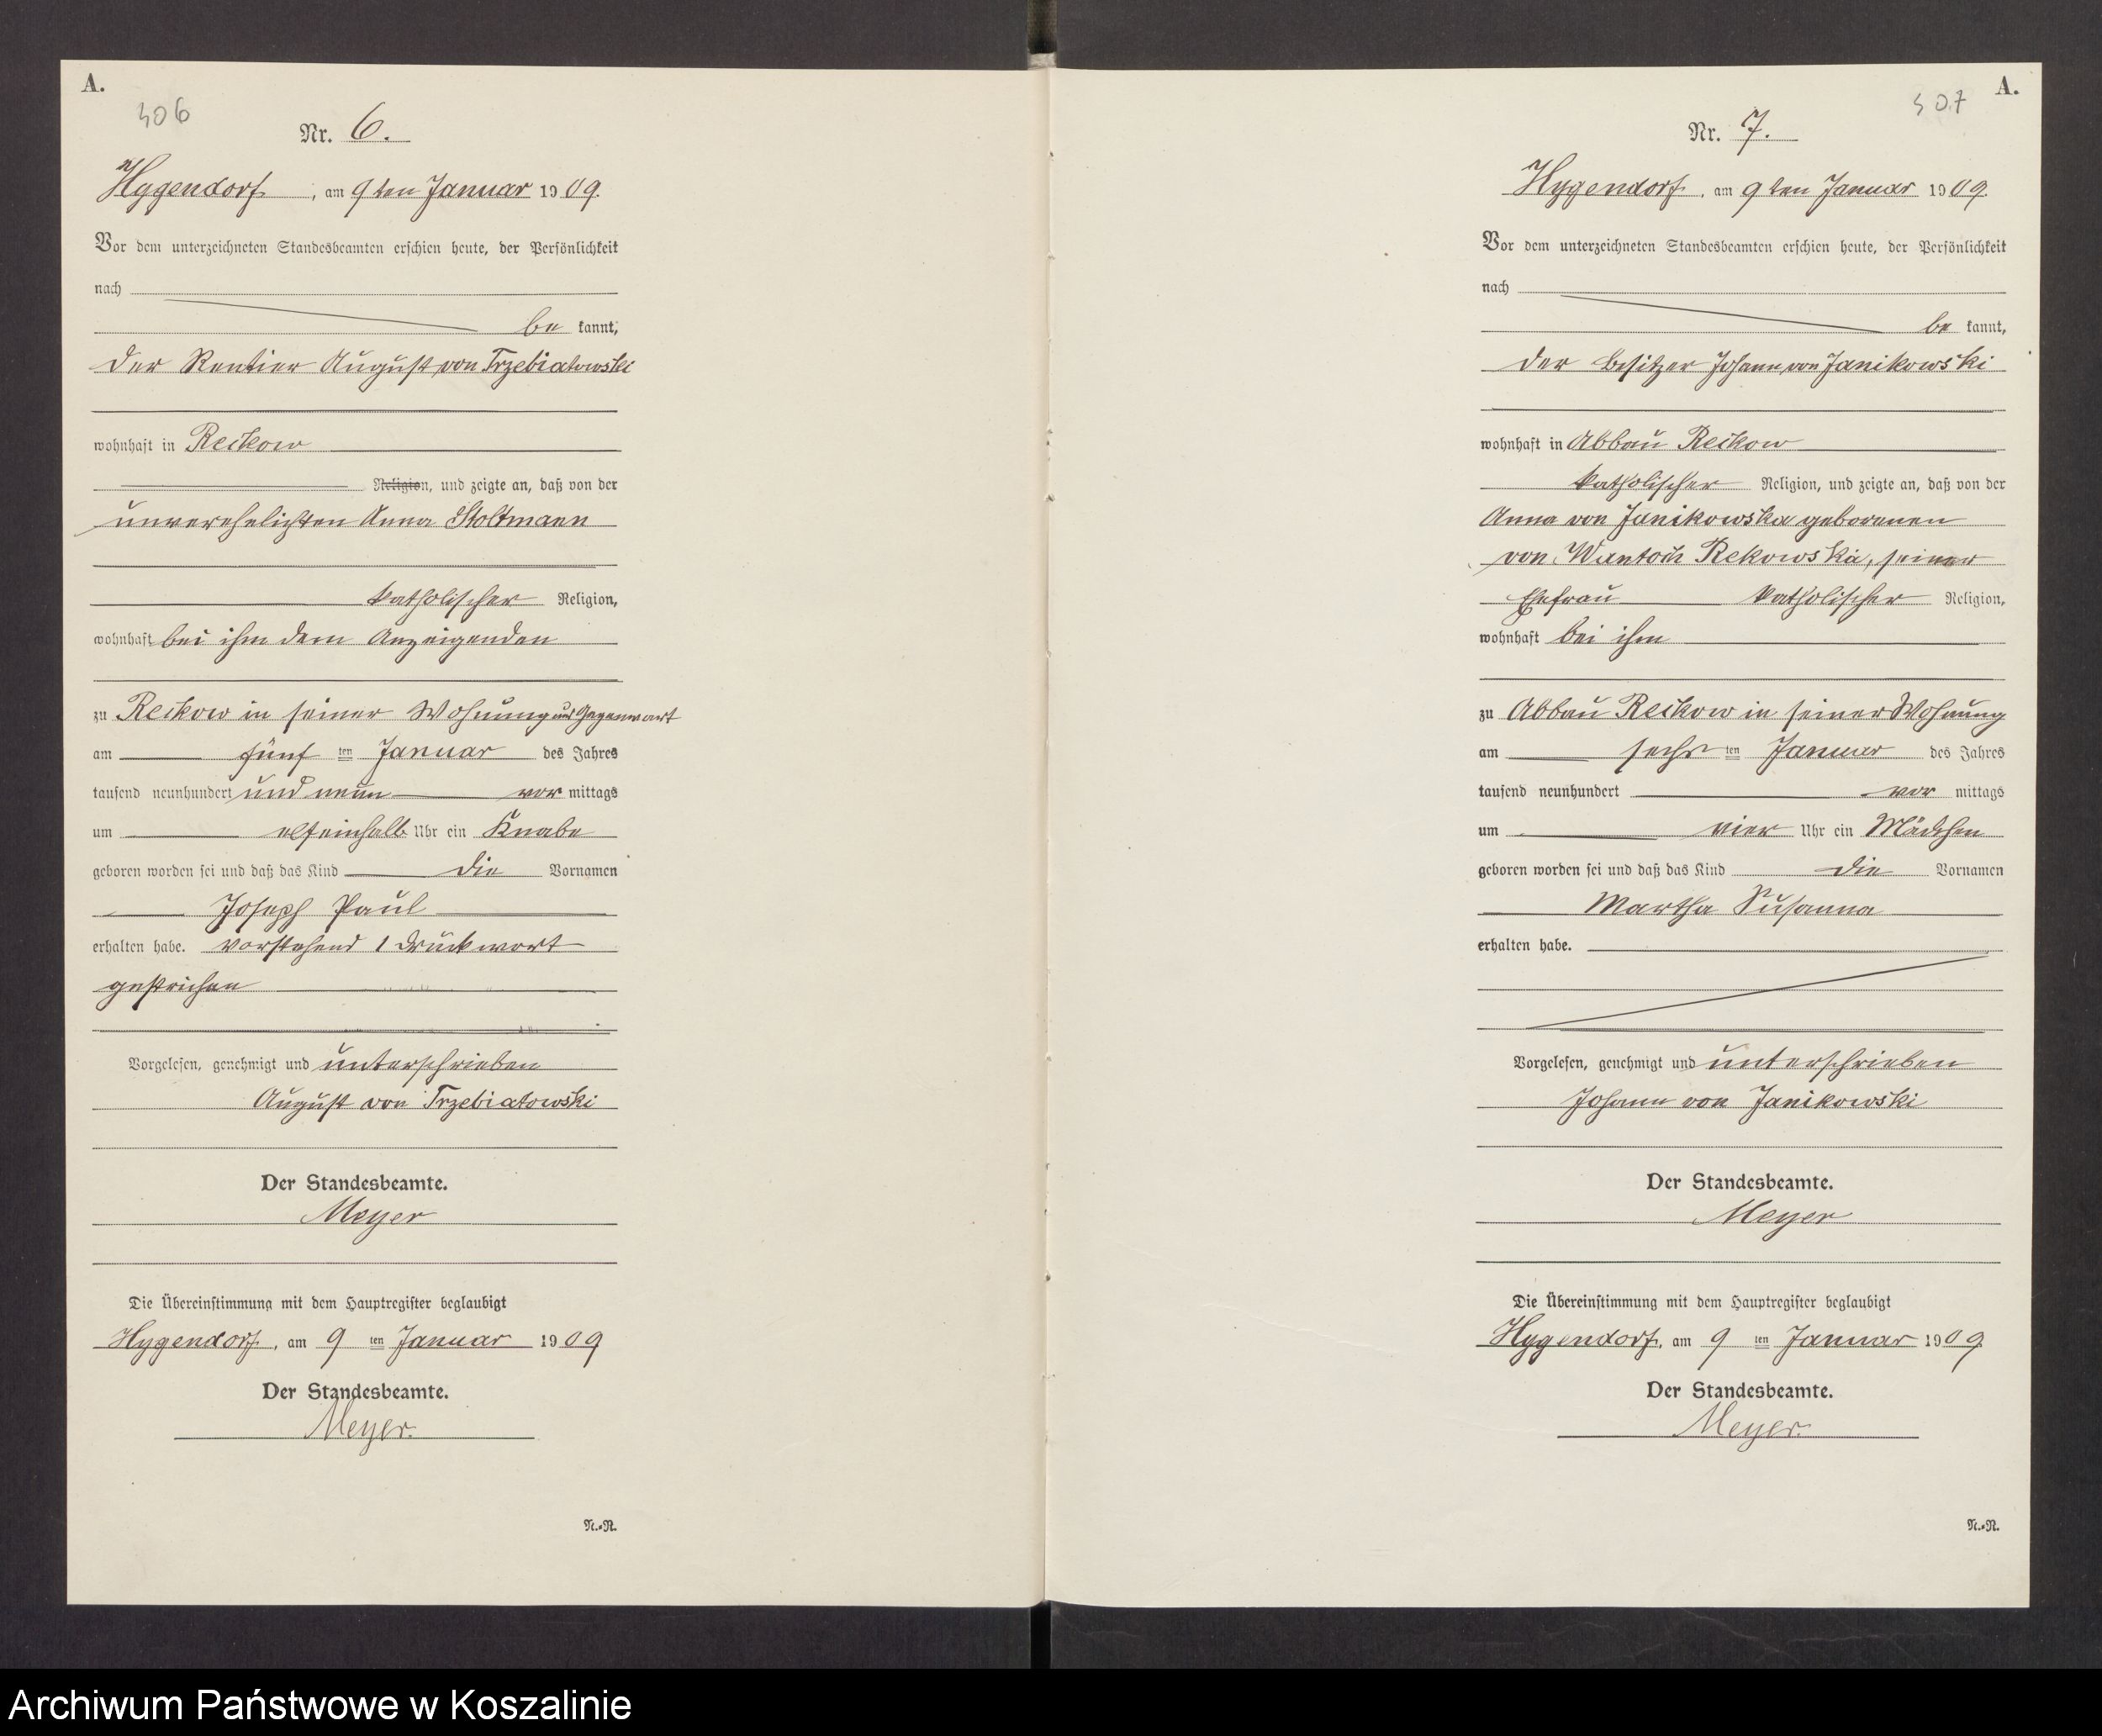 A.
306
Nr. 6.
Hygendorf, am 9ten Januar 1909.
Vor dem unterzeichneten Standesbeamten erschien heute, der Persönlichkeit
nach
be kannt,
der Rentier August von Trzebiatowski
wohnhaft in Reckow
Religion, und zeigte an, daß von der
unverehelichten Anna Stoltmann
katholischer Religion,
wohnhaft bei ihm dem Anzeigenden
zu Reckow in seiner Wohnung und Gegenwart
am fünf ten Januar des Jahres
tausend neunhundert und neun vor mittags
um elfeinhalb Uhr ein Knabe
geboren worden sei und daß das Kind die Vornamen
Joseph Paul
erhalten habe. Vorstehend 1 Druckwort
gestrichen
Vorgelesen, genehmigt und unterschrieben
August von Trzebiatowski
Der Standesbeamte.
Meyer
Die Übereinstimmung mit dem Hauptregister beglaubigt
Hygendorf, am 9 ten Januar 1909
Der Standesbeamte.
Meyer.
N.-N.
307
A.
Nr. 7.
Hygendorf, am 9ten Januar 1909.
Vor dem unterzeichneten Standesbeamten erschien heute, der Persönlichkeit
nach
be kannt,
der Besitzer Johann von Janikowski
wohnhaft in Abbau Reckow
katholischer Religion, und zeigte an, daß von der
Anna von Janikowska geborenen
von Wantoch Rekowska, seiner
Ehefrau katholischer Religion,
wohnhaft bei ihm
zu Abbau Reckow in seiner Wohnung
am sechs ten Januar des Jahres
tausend neunhundert vor mittags
um vier Uhr ein Mädchen
geboren worden sei und daß das Kind die Vornamen
Martha Susanna
erhalten habe.
Vorgelesen, genehmigt und unterschrieben
Johann von Janikowski
Der Standesbeamte.
Meyer
Die Übereinstimmung mit dem Hauptregister beglaubigt
Hygendorf, am 9 ten Januar 1909.
Der Standesbeamte.
Meyer.
N.-N.
Archiwum Państwowe w Koszalinie